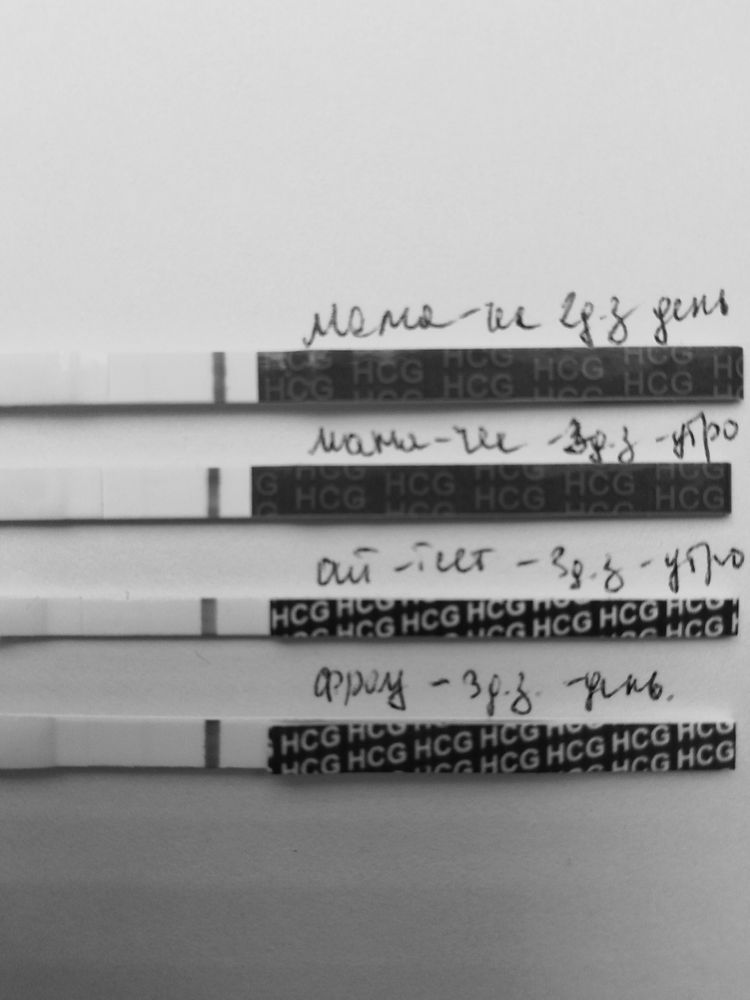 мама-чек 2д.з день
HCG HCG HCG HCG HCG
HCG HCG HCG HCG HCG
мама-чек -3д.з -утро
HCG HCG HCG HCG HCG
HCG HCG HCG HCG HCG
ай-тест - 3д.з - утро
HCG HCG HCG HCG HCG HCG HCG
HCG HCG HCG HCG HCG HCG HCG
фрау - 3д.з. -день.
HCG HCG HCG HCG HCG HCG HCG
HCG HCG HCG HCG HCG HCG HCG